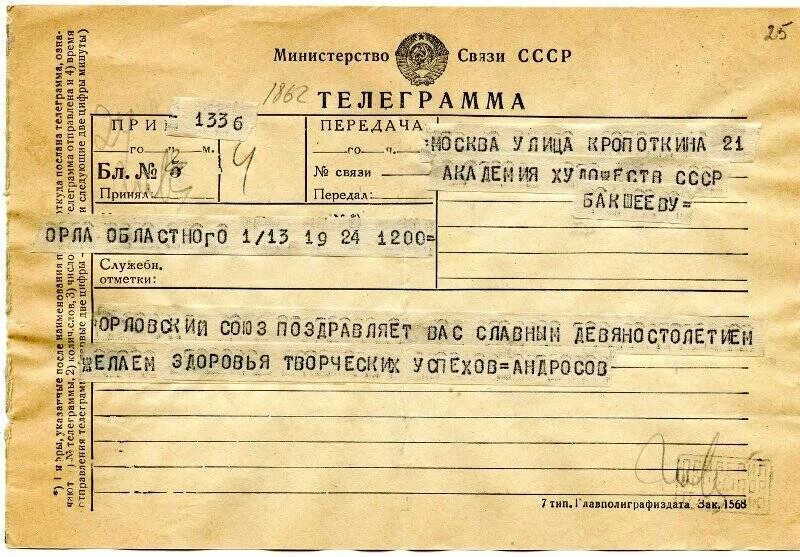 25
Министерство Связи СССР
1862
ТЕЛЕГРАММА
ПРИ 1336
го ч. м.
Бл. №
Принял:
4
ПЕРЕДАЧА
го ч.
№ связи
Передал:
МОСКВА УЛИЦА КРОПОТКИНА 21
АКАДЕМИЯ ХУДОЖЕСТВ СССР
БАКШЕЕВУ=
ОРЛА ОБЛАСТНОГО 1/13 19 24 1200=
Служебн.
отметки:
ОРЛОВСКИЙ СОЮЗ ПОЗДРАВЛЯЕТ ВАС СЛАВНЫМ ДЕВЯНОСТОЛЕТИЕМ
ЖЕЛАЕМ ЗДОРОВЬЯ ТВОРЧЕСКИХ УСПЕХОВ=АНДРОСОВ
7 тип. Главполиграфиздата. Зак. 1568
ры, указанные после наименования
№ телеграммы, 2) колич. слов, 3) число
отправления телеграммы
откуда послана телеграмма, озна-
телеграмма отправлена и 4) время
и следующие две цифры минуты)